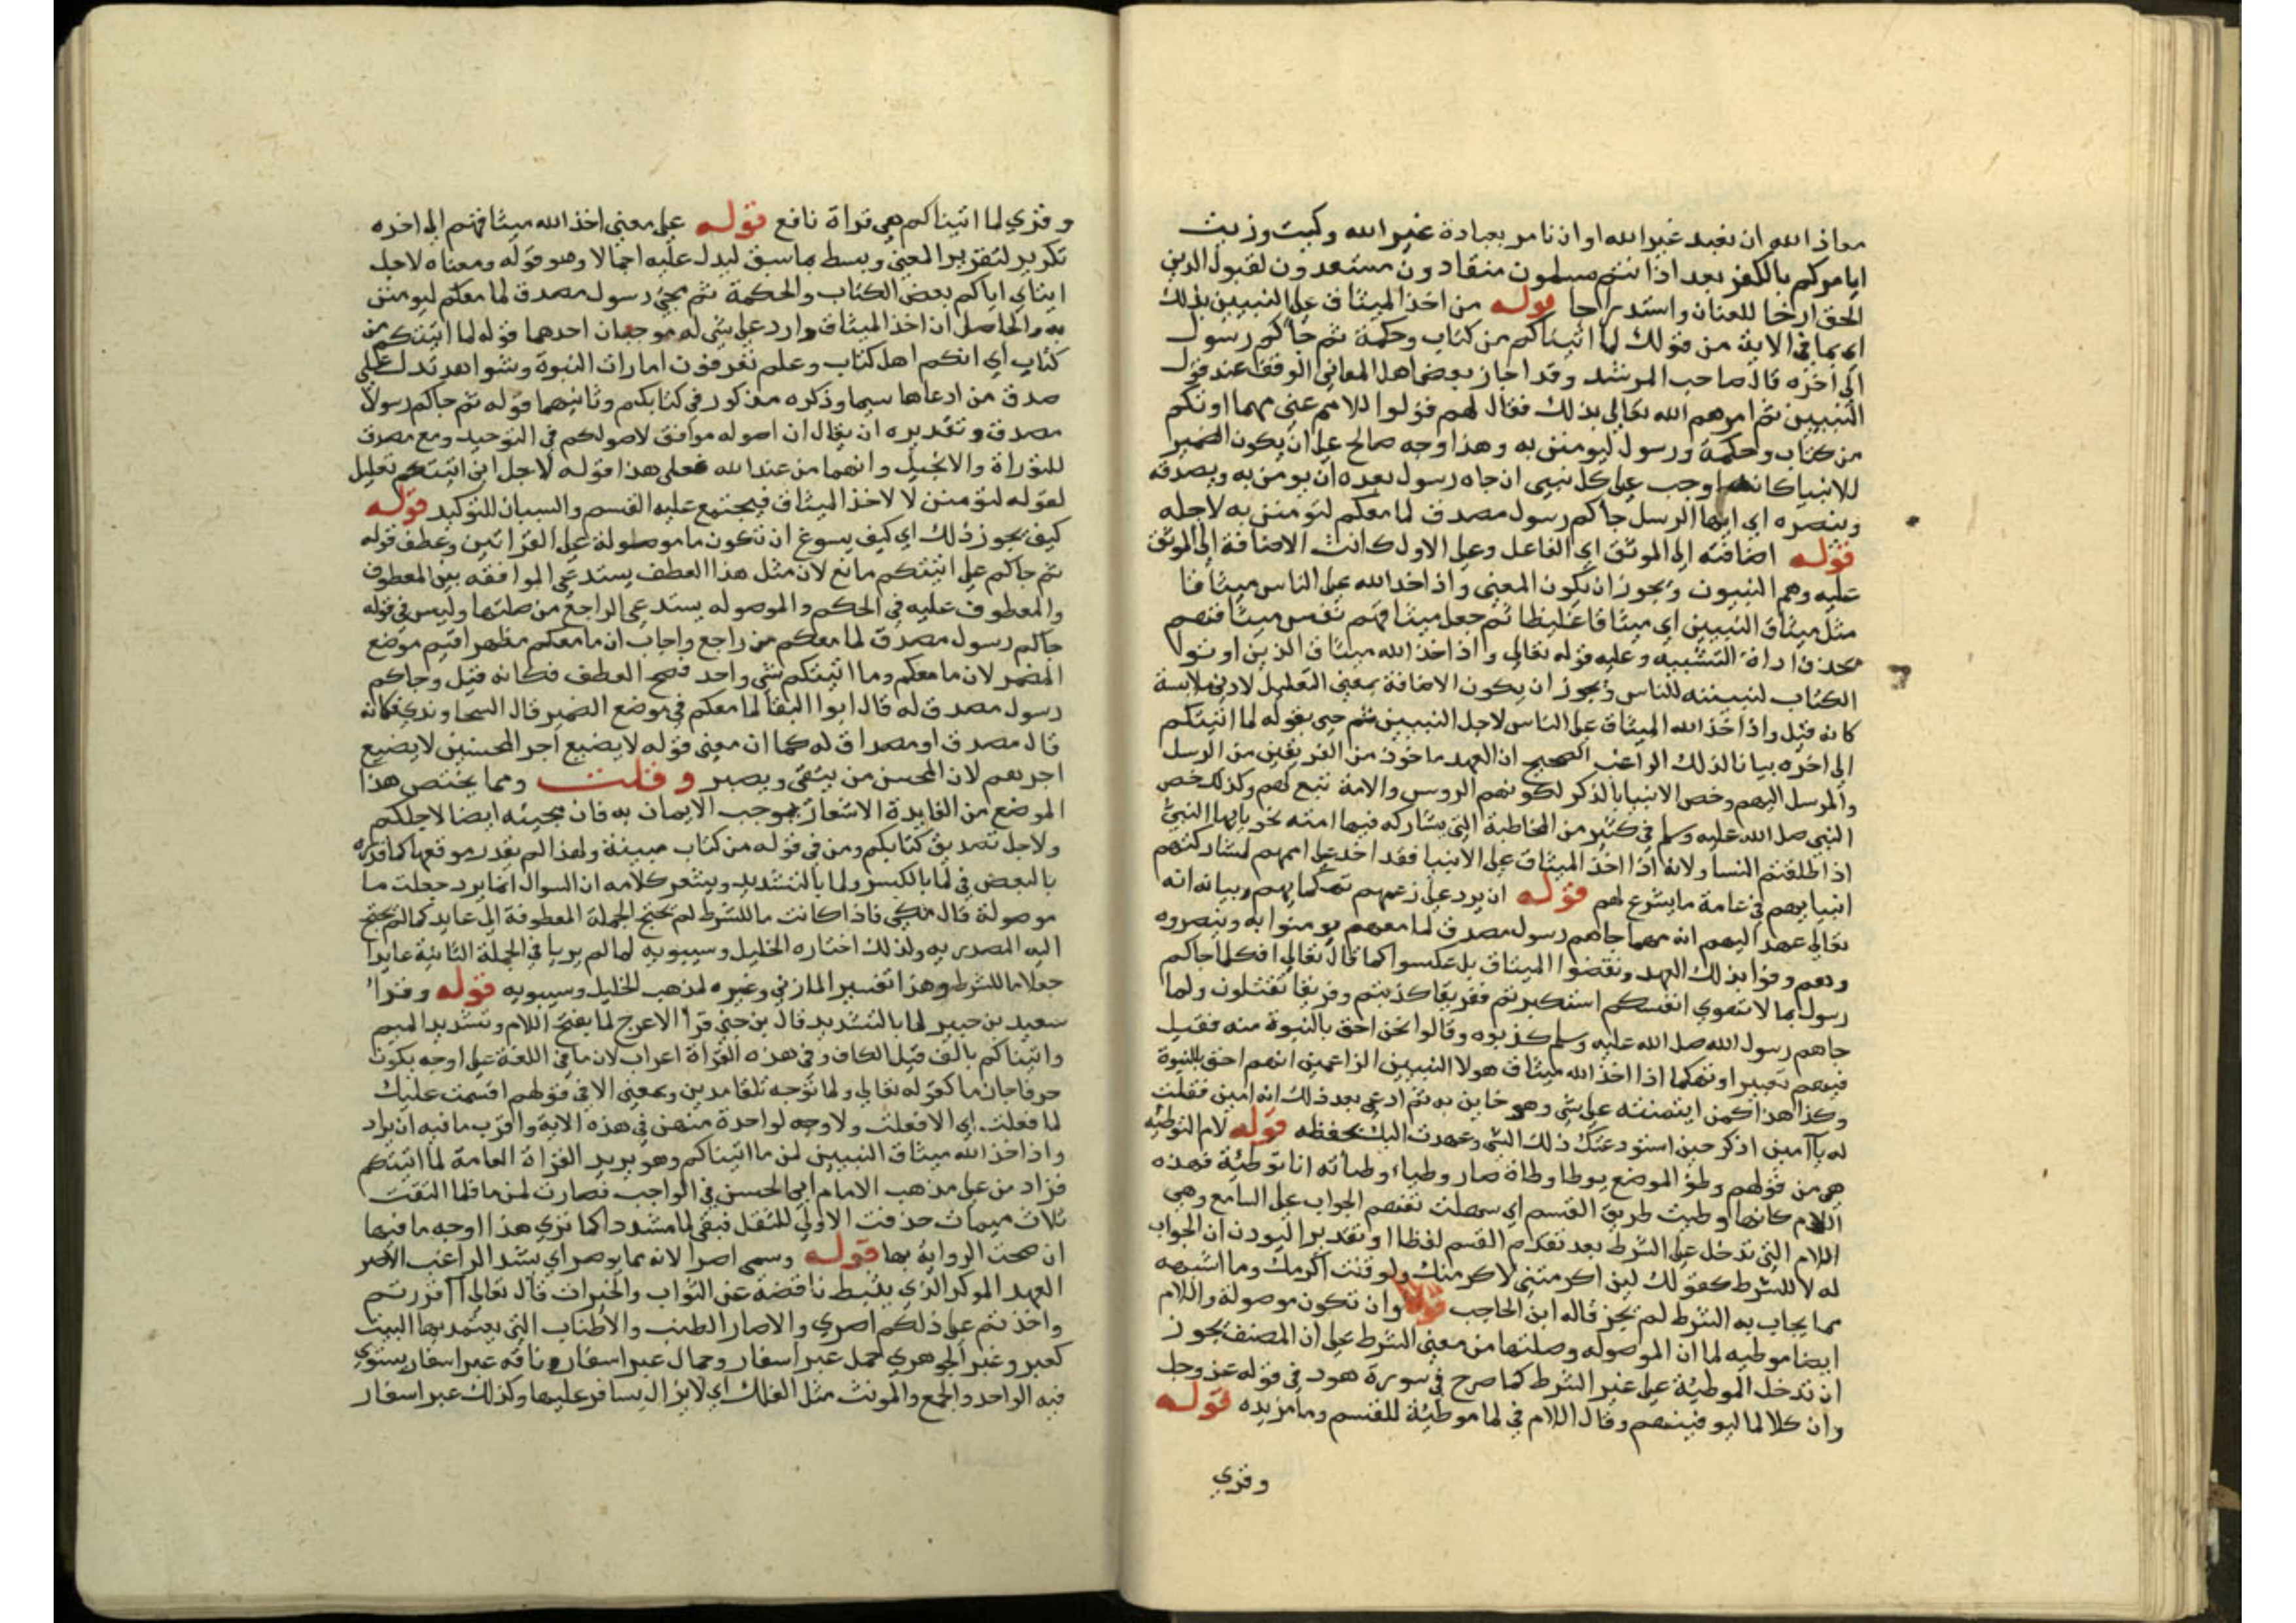 معاذ الله ان نعبد غير الله او ان نامر بعبادة غير الله وكيت وزيت
ايامركم بالكفر بعد اذ انتم مسلمون منقادون مستعدون لقبول الدين
الحق ارخا للعنان واستدراجا قوله من اخذ الميثاق على النبيين بذلك
اي بما في الاية من قولك لما اتيناكم من كتاب وحكمة ثم جاكم رسول
الى اخره قال صاحب المرشد وقد اجاز بعض اهل المعاني الوقف عند قول
النبيين ثم امرهم الله تعالى بذلك فقال لهم قولوا للامم عني مهما اوتكم
من كتاب وحكمة ورسول ليومنن به وهذا وجه صالح على ان يكون الضمير
للانبيا كانه اوجب على كل نبي ان جاه رسول بعده ان يومن به ويصدقه
وينصره اي ايها الرسل جاكم رسول مصدق لما معكم لتومنن به لاجله
قوله اضافته الى الموثق اي الفاعل وعلى الاول كانت الاضافة الى الموثق
عليه وهم النبيون ويجوز ان يكون المعنى واذ اخذ الله على الناس ميثاقا
مثل ميثاق النبيين اي ميثاقا غليظا ثم جعل ميثاقهم نفس ميثاقهم
بحذف اداة التشبيه وعليه قوله تعالى واذ اخذ الله ميثاق الذين اوتوا
الكتاب لتبيننه للناس ويجوز ان يكون الاضافة بمعنى التعليل لادنى ملابسة
كانه قيل واذ اخذ الله الميثاق على الناس لاجل النبيين ثم جي بقوله لما اتيتكم
الى اخره بيانا لذلك الراغب الصحيح ان العهد ماخوذ من الفريقين من الرسل
والمرسل اليهم وخص الانبيا بالذكر لكونهم الروس والامة تبع لهم وكذلك خص
النبي صلى الله عليه وسلم في كثير من المخاطبة التي يشاركه فيها امته نحو يا ايها النبي
اذا طلقتم النسا ولانه اذا اخذ الميثاق على الانبيا فقد اخذ على اممهم لمشاركتهم
انبيايهم في عامة ما يشرع لهم قوله ان يرد على زعمهم تهكما بهم وبيانه انه
تعالى عهد اليهم انه مهما جاهم رسول مصدق لما معهم يومنوا به وينصروه
ودعم وفوا بذلك العهد ونقضوا الميثاق بل عكسوا كما قال تعالى افكلما جاكم
رسول بما لا تهوى انفسكم استكبرتم ففريقا كذبتم وفريقا تقتلون ولما
جاهم رسول الله صلى الله عليه وسلم كذبوه وقالوا نحن احق بالنبوة منه فقيل
فيهم تعبيرا وتهكما اذ اخذ الله ميثاق هولا النبيين الزاعمين انهم احق بالنبوة
وكذا هذا كمن ايتمنته على شي وهو خاين به ثم ادعى بعد ذلك انه امين فقلت
له يا امين اذكر حين استودعتك ذلك الشي وعهدت اليك بحفظه قوله لام التوطيه
هو من قولهم وطؤ الموضع يوطا وطاة صار وطيا وطاته انا توطئة فهذه
اللام كانها وطيت طريق القسم اي سهلت تفهم الجواب على السامع وهي
اللام التي تدخل على الشرط بعد تقدم القسم لفظا او تقديرا ليوذن ان الجواب
له لا للشرط كقولك لين اكرمتني لاكرمنك ولو قلت اكرمك وما اشبهه
مما يجاب به الشرط لم يجز قاله ابن الحاجب قوله وان تكون موصولة واللام
ايضا موطيه لما ان الموصوله وصلتها من معنى الشرط على ان المصنف يجوز
ان تدخل الموطية على غير الشرط كما صرح في سورة هود في قوله عز وجل
وان كلا لما ليوفينهم وقال اللام في لما موطئة للقسم وما مزيده قوله
وقري
وقري لما اتيناكم هي قراة نافع قوله على معنى اخذ الله ميثاقهم الى اخره
تكرير لتقرير المعنى وبسط ما سبق ليدل عليه اجمالا وهو قوله ومعناه لاجل
ايتاي اياكم بعض الكتاب والحكمة ثم مجي رسول مصدق لما معكم ليومنن
به والحاصل ان اخذ الميثاق وارد على شي له موجبان احدهما قوله لما اتيتكم من
كتاب اي انكم اهل كتاب وعلم تعرفون امارات النبوة وشواهد تدل على
صدق من ادعاها سيما وذكره مذكور في كتابكم وثانيهما قوله ثم جاكم رسول
مصدق وتقديره ان يقال ان اصوله موافق لاصولكم في التوحيد ومع مصدق
للتوراة والانجيل وانهما من عند الله فعلى هذا قوله لاجل اني اتيتكم تعليل
لقوله لتومنن لا لاخذ الميثاق فيجتمع عليه القسم والسببان للتوكيد قوله
كيف يجوز ذلك اي كيف يسوغ ان تكون ما موصولة على القراتين وعطف قوله
ثم جاكم على اتيتكم مانع لان مثل هذا العطف يستدعي الموافقه بين المعطوف
والمعطوف عليه في الحكم والموصوله يستدعي الراجع من صلتها وليس في قوله
جاكم رسول مصدق لما معكم من راجع واجاب ان ما معكم مظهر اقيم موضع
المضمر لان ما معكم وما اتيتكم شي واحد فصح العطف فكانه قيل وجاكم
رسول مصدق له قال ابو البقا لما معكم في موضع الضمير قال السجاوندي فكانه
قال مصدق او مصداق له كما ان معنى قوله لا يضيع اجر المحسنين لا يضيع
اجرهم لان المحسن من يتقي ويصبر وقلت ومما يختص هذا
الموضع من الفايدة الاشعار بموجب الايمان به فان مجيئه ايضا لاجلكم
ولاجل تصديق كتابكم ومن في قوله من كتاب مبينة ولهذا لم يقدر موقعها كما قدره
بالبعض في لما بالكسر ولما بالتشديد ويشعر كلامه ان السوال انما يرد جعلت ما
موصولة قال مكي فاذا كانت ما للشرط لم تحتج الجملة المعطوفة الى عايد كما لم تحتج
اليه المصدريه ولذلك اختاره الخليل وسيبويه لما لم يريا في الجملة الثانية عايدا
جعلا ما للشرط وهذا تفسير المازني وغيره لمذهب الخليل وسيبويه قوله وقرا
سعيد بن جبير لما بالتشديد قال بن جني قرا الاعرج لما بفتح اللام وتشديد الميم
واتيناكم بالف قبل الكاف وفي هذه القراة اعراب لان ما في اللغة على اوجه يكون
حرفا جازما كقوله تعالى ولما توجه تلقا مدين وبمعنى الا في قولهم اقسمت عليك
لما فعلت اي الا فعلت ولا وجه لواحدة منهن في هذه الاية واقرب ما فيه ان يراد
واذ اخذ الله ميثاق النبيين لمن ما اتيناكم وهو يريد القراة العامة لما اتيتكم
فزاد من على مذهب الامام ابي الحسن في الواجب فصارت لمن ما فلما التقت
ثلاث ميمات حذفت الاولى للثقل فبقي لما مشددا كما ترى هذا اوجه ما فيها
ان صحت الرواية بها قوله وسمي اصرا لانه مما يوصر اي يشد الراغب الاصر
العهد الموكد الذي يثبط ناقضه عن الثواب والخيرات قال تعالى ااقررتم
واخذتم على ذلكم اصري والاصار الطنب والاطناب التي يعتمد بها البيت
كعبر وعبر الجوهري جمل عبر اسفار وجمال عبر اسفار وناقه عبر اسفار يستوي
فيه الواحد والجمع والمونث مثل الفلك اي لا يزال يسافر عليها وكذلك عبر اسفار